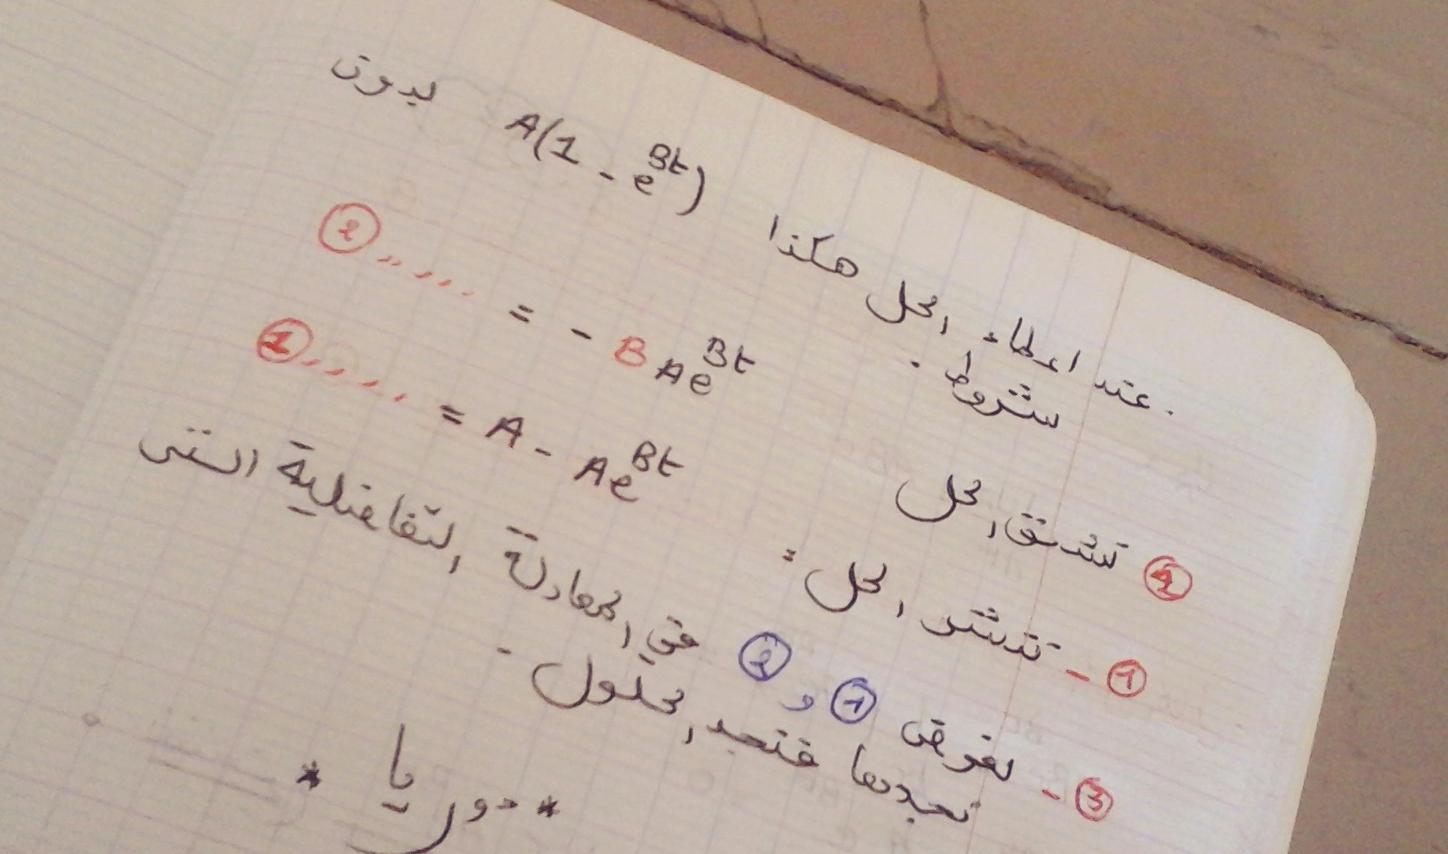 . عند اعطاء الحل هكذا A(1 - e^Bt) بدون
شروط .
② نشتق الحل = - BAe^Bt ..... ②
① - ننشر الحل : = A - Ae^Bt ..... ①
③ - نعوض ① و ② في المعادلة التفاضلية التي
نجدها فنجد الحلول .
* دوريا *